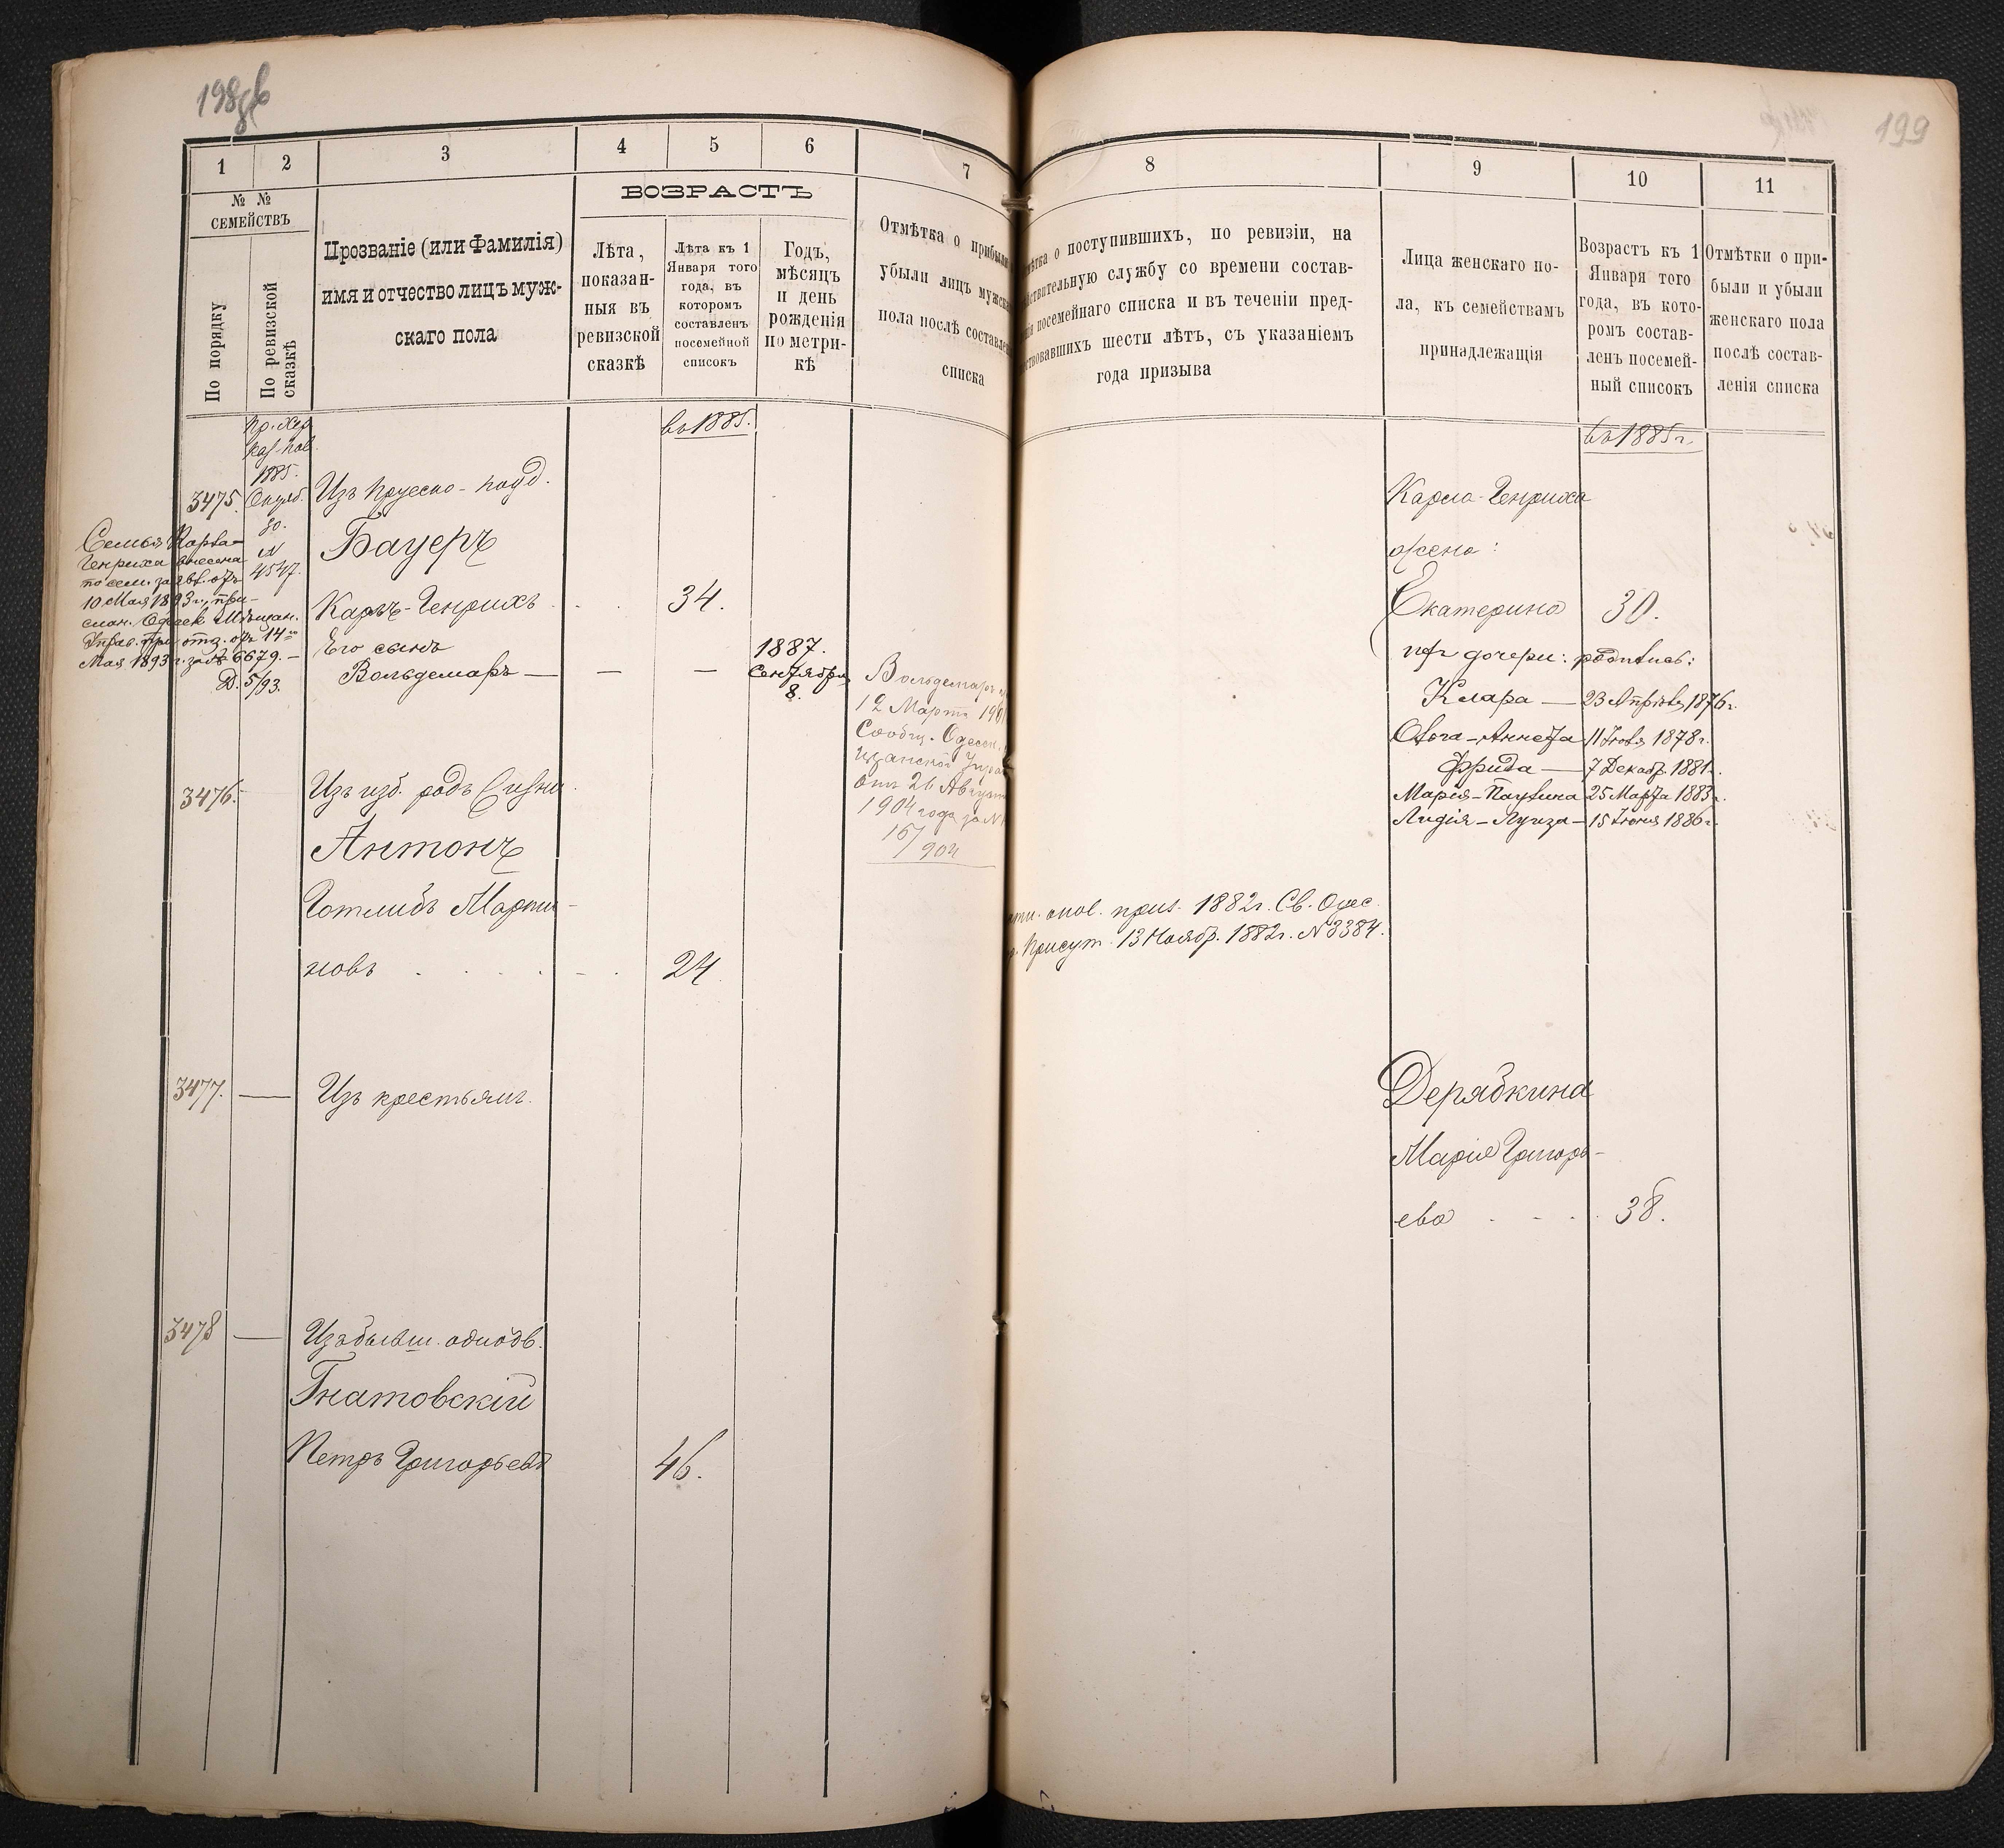 198 об
1
2
3
4
5
6
7
№ №
СЕМЕЙСТВЪ
По порядку
По ревизской сказкѣ
Прозваніе (или Фамилія)
имя и отчество лицъ муж-
скаго пола
ВОЗРАСТЪ
Лѣта,
показан-
ныя въ
ревизской
сказкѣ
Лѣта къ 1
Января того
года, въ
которомъ
составленъ
посемейной
списокъ
Годъ,
мѣсяцъ
и день
рожденія
по метри-
кѣ
Отмѣтка о прибыли
убыли лицъ мужск
пола послѣ составле
списка
въ 1885.
Пр. Хер.
каз. пал.
1885.
3475.
Октяб.
30.
N
4547.
Изъ прусско-подд.
Бауеръ
Семья Карла-
Генриха внесена
по сем. заявл. отъ
10 Мая 1893 г., при-
слан. Одесск. Мѣщан.
Управ. при отз. отъ 14го
Мая 1893 г. за № 6679. —
Д. 5/93.
Карлъ-Генрихъ
34.
Его сынъ
Вольдемаръ — — —
1887.
Сентября
8.
Вольдемаръ
12 Марта 190
Сообщ. Одесск.
щанской Упра
отъ 26 Август
1904 года за N
16/904
3476.
Изъ
Антонъ
Готлибъ Марти-
новъ
24
3477. —
Изъ крестьянъ.
3478 —
Изъ бывш. однодв.
Гнатовскій
Петръ Григорьевъ
46.
199
8
9
10
11
мѣтка о поступившихъ, по ревизіи, на
йствительную службу со времени состав-
нія посемейнаго списка и въ теченіи пред-
ствовавшихъ шести лѣтъ, съ указаніемъ
года призыва
Лица женскаго по-
ла, къ семействамъ
принадлежащія
Возрастъ къ 1
Января того
года, въ кото-
ромъ состав-
ленъ посемей-
ный списокъ
Отмѣтки о при-
были и убыли
женскаго пола
послѣ состав-
ленія списка
въ 1885 г.
Карла-Генриха
жена:
Екатерина 30.
ихъ дочери: родились:
Клара — 23 Апрѣля 1876 г.
Ольга-Аннета 11 Іюля 1878 г.
Фрида — 7 Декаб. 1881 г.
Марія-Паулина 25 Марта 1883 г.
Лидія-Луиза — 15 Іюня 1886 г.
опол. приз. 1882 г. Св. Одес.
Присут. 13 Ноябр. 1882 г. N 3384.
Дерябкина
Марія Григорь-
ева
38.